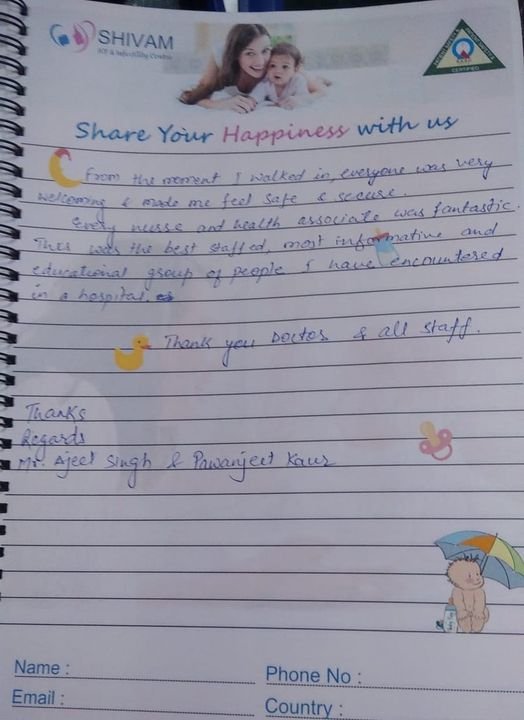 SHIVAM
IVF & Infertility Centre
CERTIFIED
Share Your Happiness with us
From the moment I walked in, everyone was very
welcoming & made me feel safe & secure.
Every nurse and health associate was fantastic.
This was the best staffed, most informative and
educational group of people I have encountered
in a hospital.
Thank you Doctor & all staff.
Thanks
Regards
Mr. Ajeet Singh & Pawanjeet Kaur
Name :
Phone No :
Email :
Country :